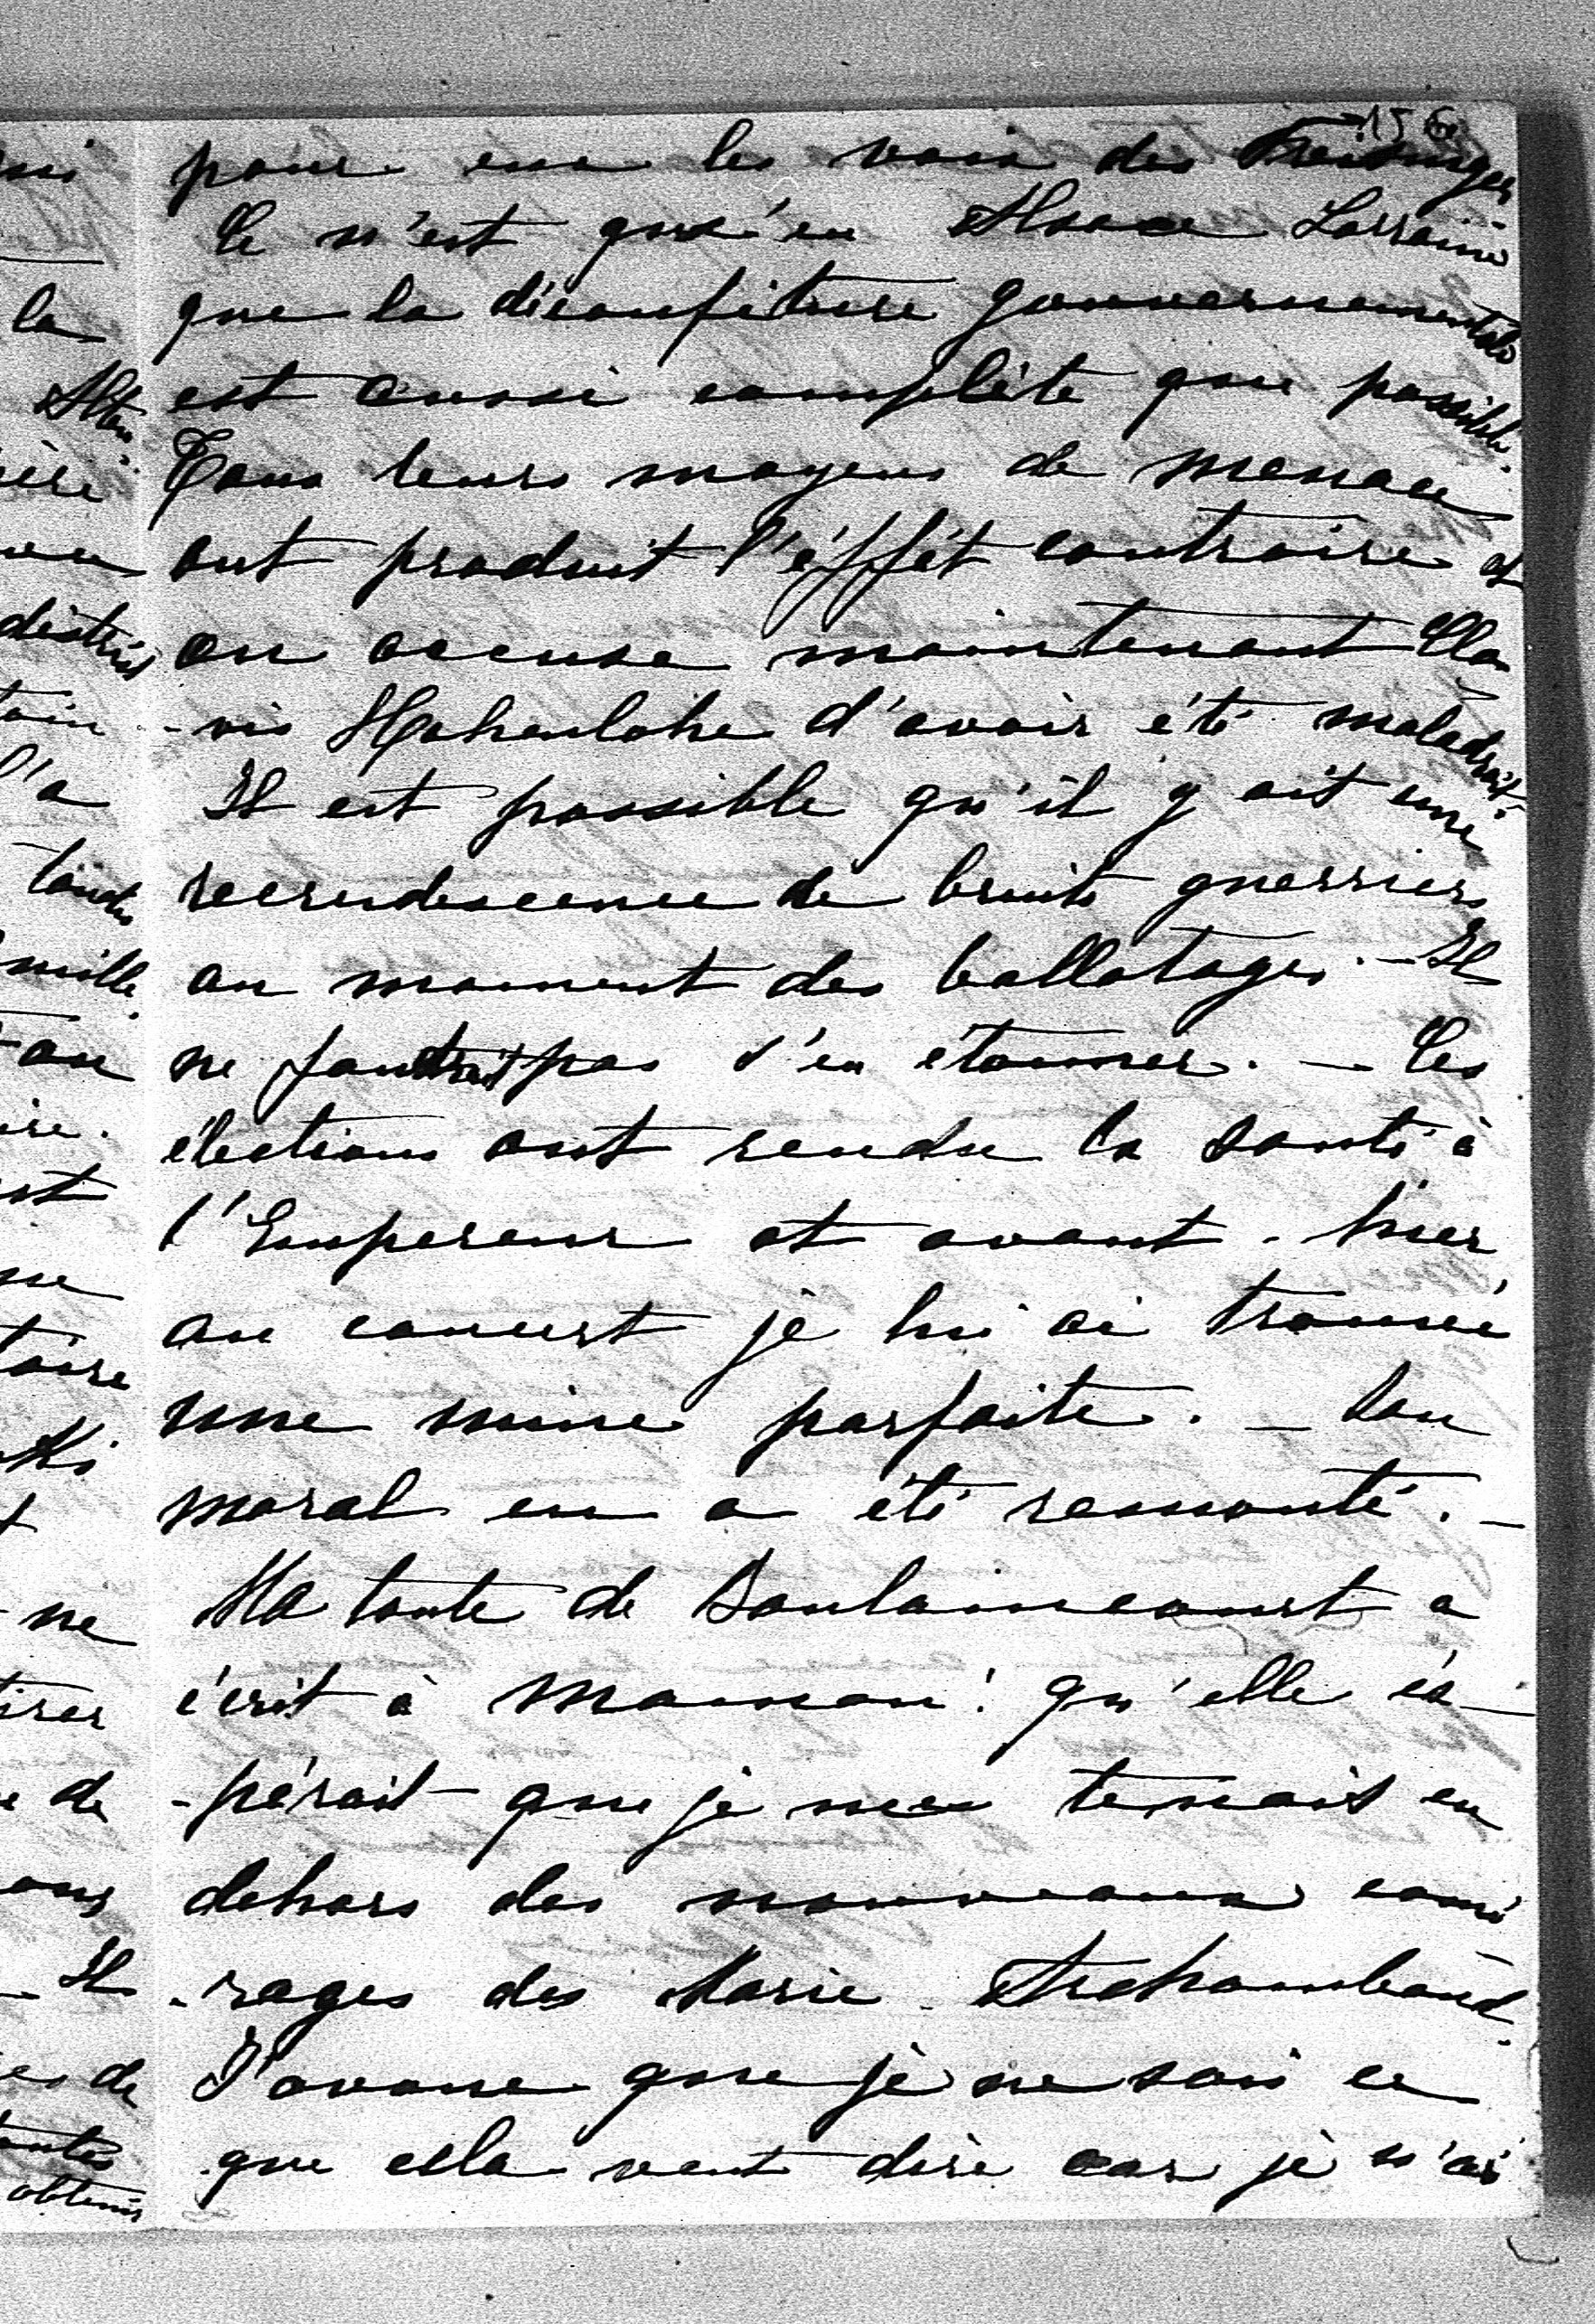 156
pour eux les voix des Freisinger
Ce n'est qu'en Alsace Lorraine
que la déconfiture gouvernementale
est aussi complète que possible.
Tous leurs moyens de menace
ont produit l'éffét contraire et
on accuse maintenant Clo
-vis Hohenlohe d'avoir été maladroit.
Il est possible qu'il y ait une
recrudescence de bruits guerriers
au moment des ballotages. - Il
ne faudrait pas s'en étonner. - Les
élections ont rendu la santé à
l'Empereur et avant-hier
au concert je lui ai trouvé
une mine parfaite. - Son
moral en a été remonté. -
Ma tante de Boulaincourt a
écrit à maman! qu'elle és-
-pérait que je me tenais en
dehors des nouveaux comé
-rages des Marie Archambaud.
J'avoue que je ne sais ce
que cela veut dire car je n'ai
la
l'a
mille.
au
ne
de
Il
de
obtenir